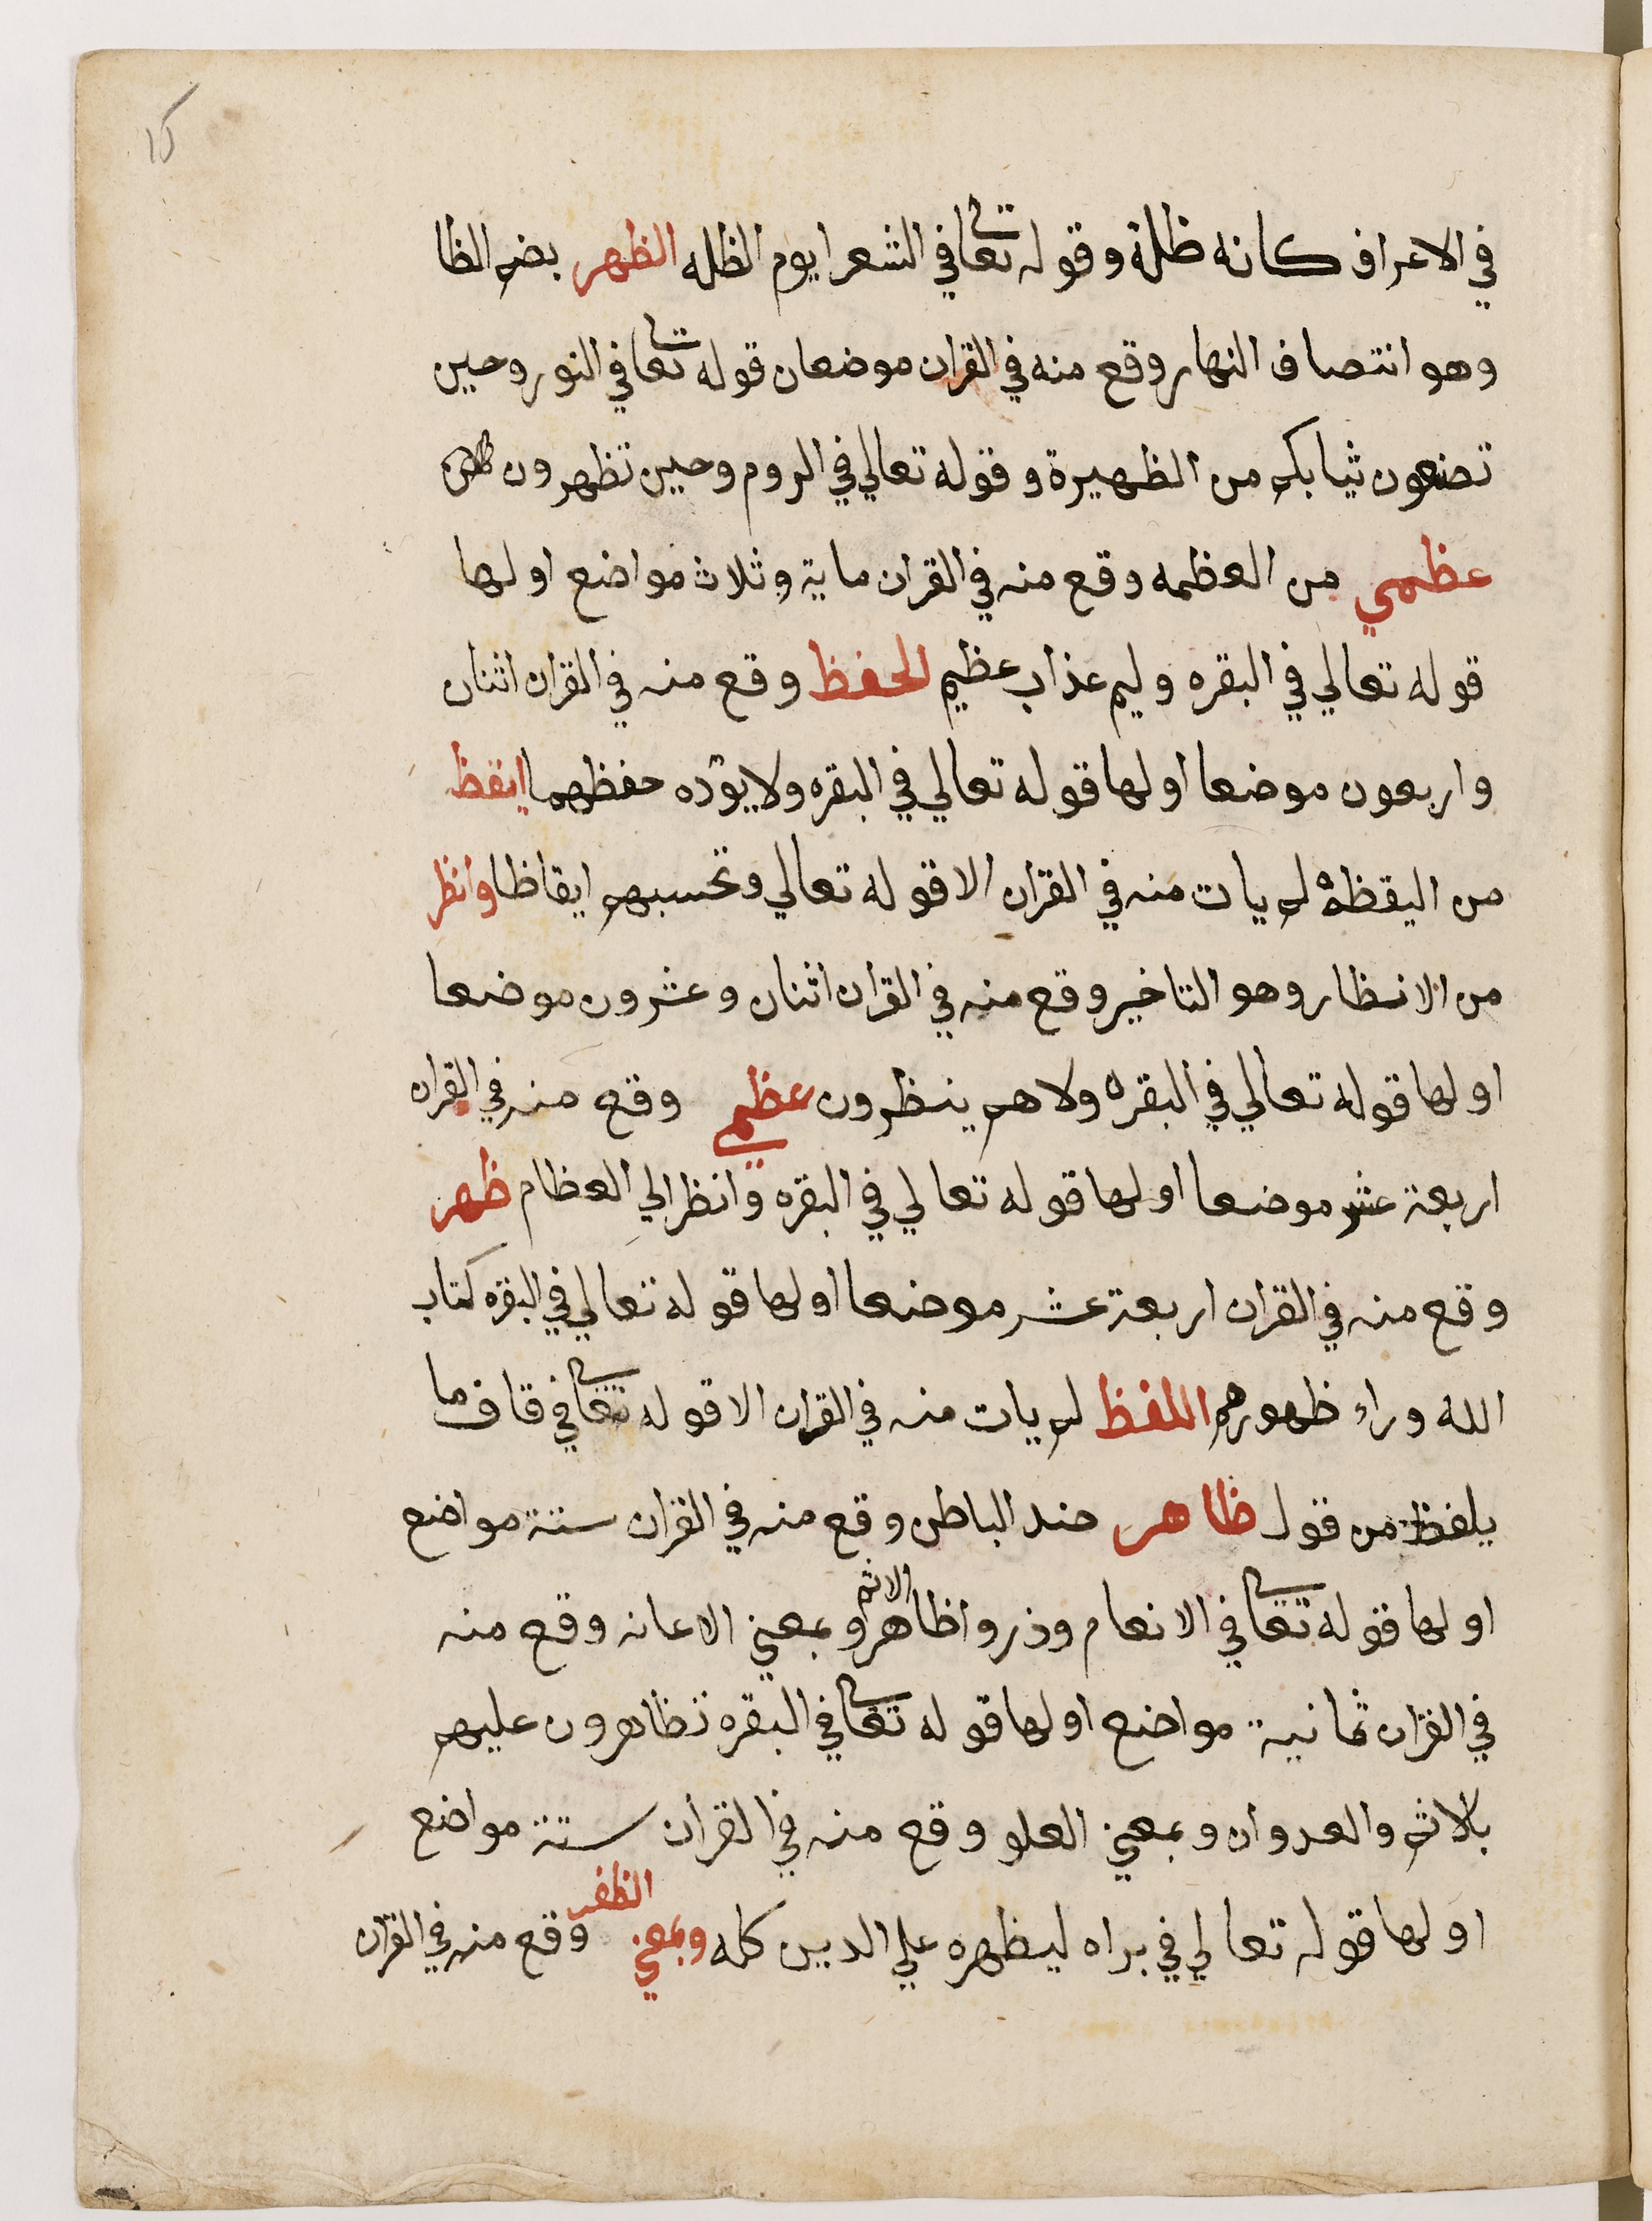 في الاعراف كانه ظلة وقوله تعالى في الشعرا يوم الظله الظهر بضم الظا
وهو انتصاف النهار وقع منه في القران موضعان قوله تعالى في النور وحين
تضعون ثيابكم من الظهيرة وقوله تعالي في الروم وحين تظهرون
عظمي من العظمه وقع منه في القران ماية وثلاث مواضع اولها
قوله تعالي في البقره ولهم عذاب عظيم الحفظ وقع منه في القران اثنان
واربعون موضعا اولها قوله تعالي في البقره ولا يوده حفظهما ايقظ
من اليقظة لم يات منه في القران الا قوله تعالي وتحسبهم ايقاظا وانظر
من الانظار وهو التاخير وقع منه في القران اثنان وعشرون موضعا
اولها قوله تعالي في البقره ولا هم ينظرون عظمي وقع منه في القران
اربعة عشر موضعا اولها قوله تعالي في البقره وانظر الي العظام ظهر
وقع منه في القران اربعة عشر موضعا اولها قوله تعالي في البقره كتاب
الله وراء ظهورهم اللفظ لم يات منه في القران الا قوله تعالى في قاف ما
يلفظ من قول ظاهر ضد الباطن وقع منه في القران ستة مواضع
اولها قوله تعالى في الانعام وذروا ظاهر الاثم وبمعني الاعانه وقع منه
في القران ثمانية مواضع اولها قوله تعالى في البقره تظاهرون عليهم
بالاثم والعدوان وبمعني العلو وقع منه في القران ستة مواضع
اولها قوله تعالي في براه ليظهره علي الدين كله وبمعني الظفر وقع منه في القران